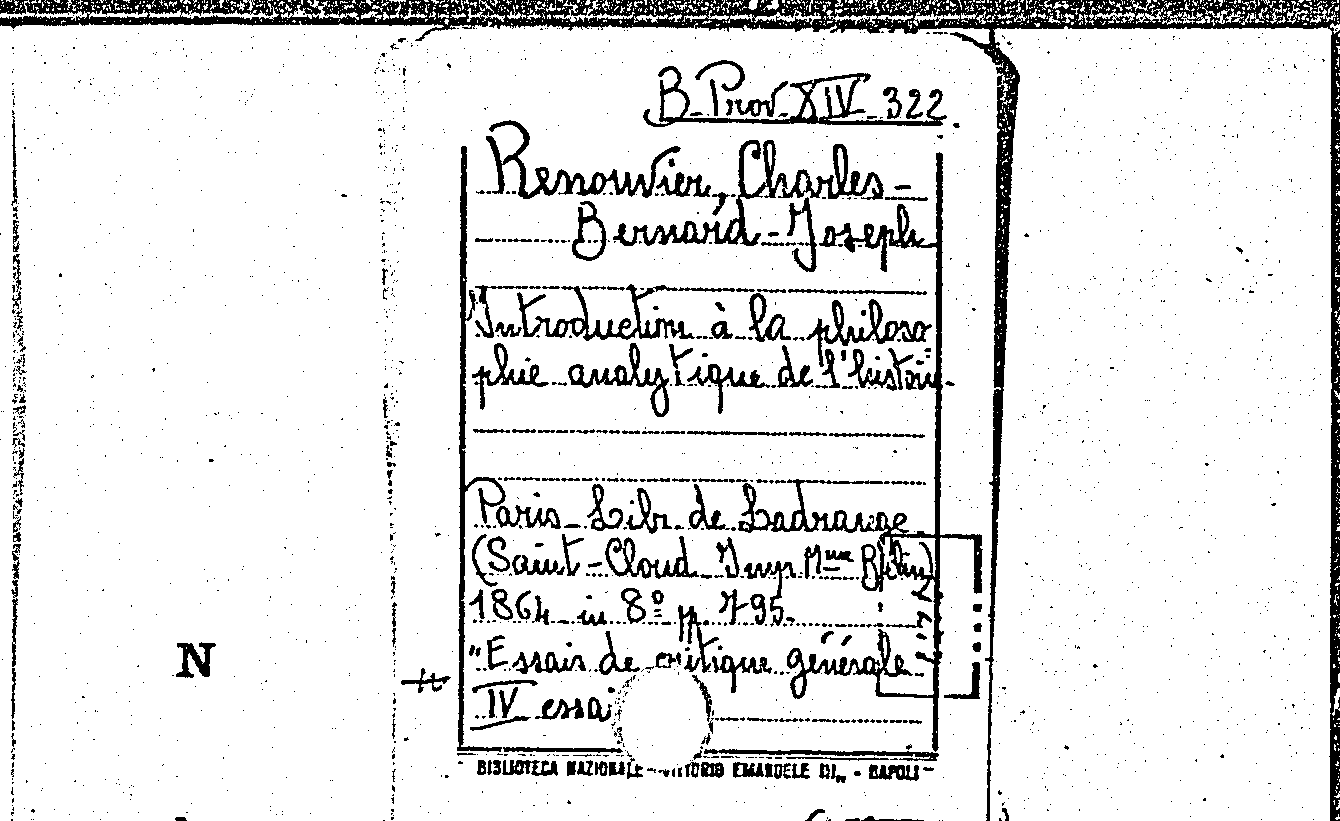 B. Prov. XIV 322
Renouvier, Charles-
Bernard-Joseph
"Introduction à la philoso
phie analytique de l'histoire
Paris - Libr. de Ladrange
(Saint-Cloud Imp. Mme Belin)
1864 in 8º pp. 795.
"Essais de critique générale
N
IV essai
BIBLIOTECA NAZIONALE - VITTORIO EMANUELE III - NAPOLI